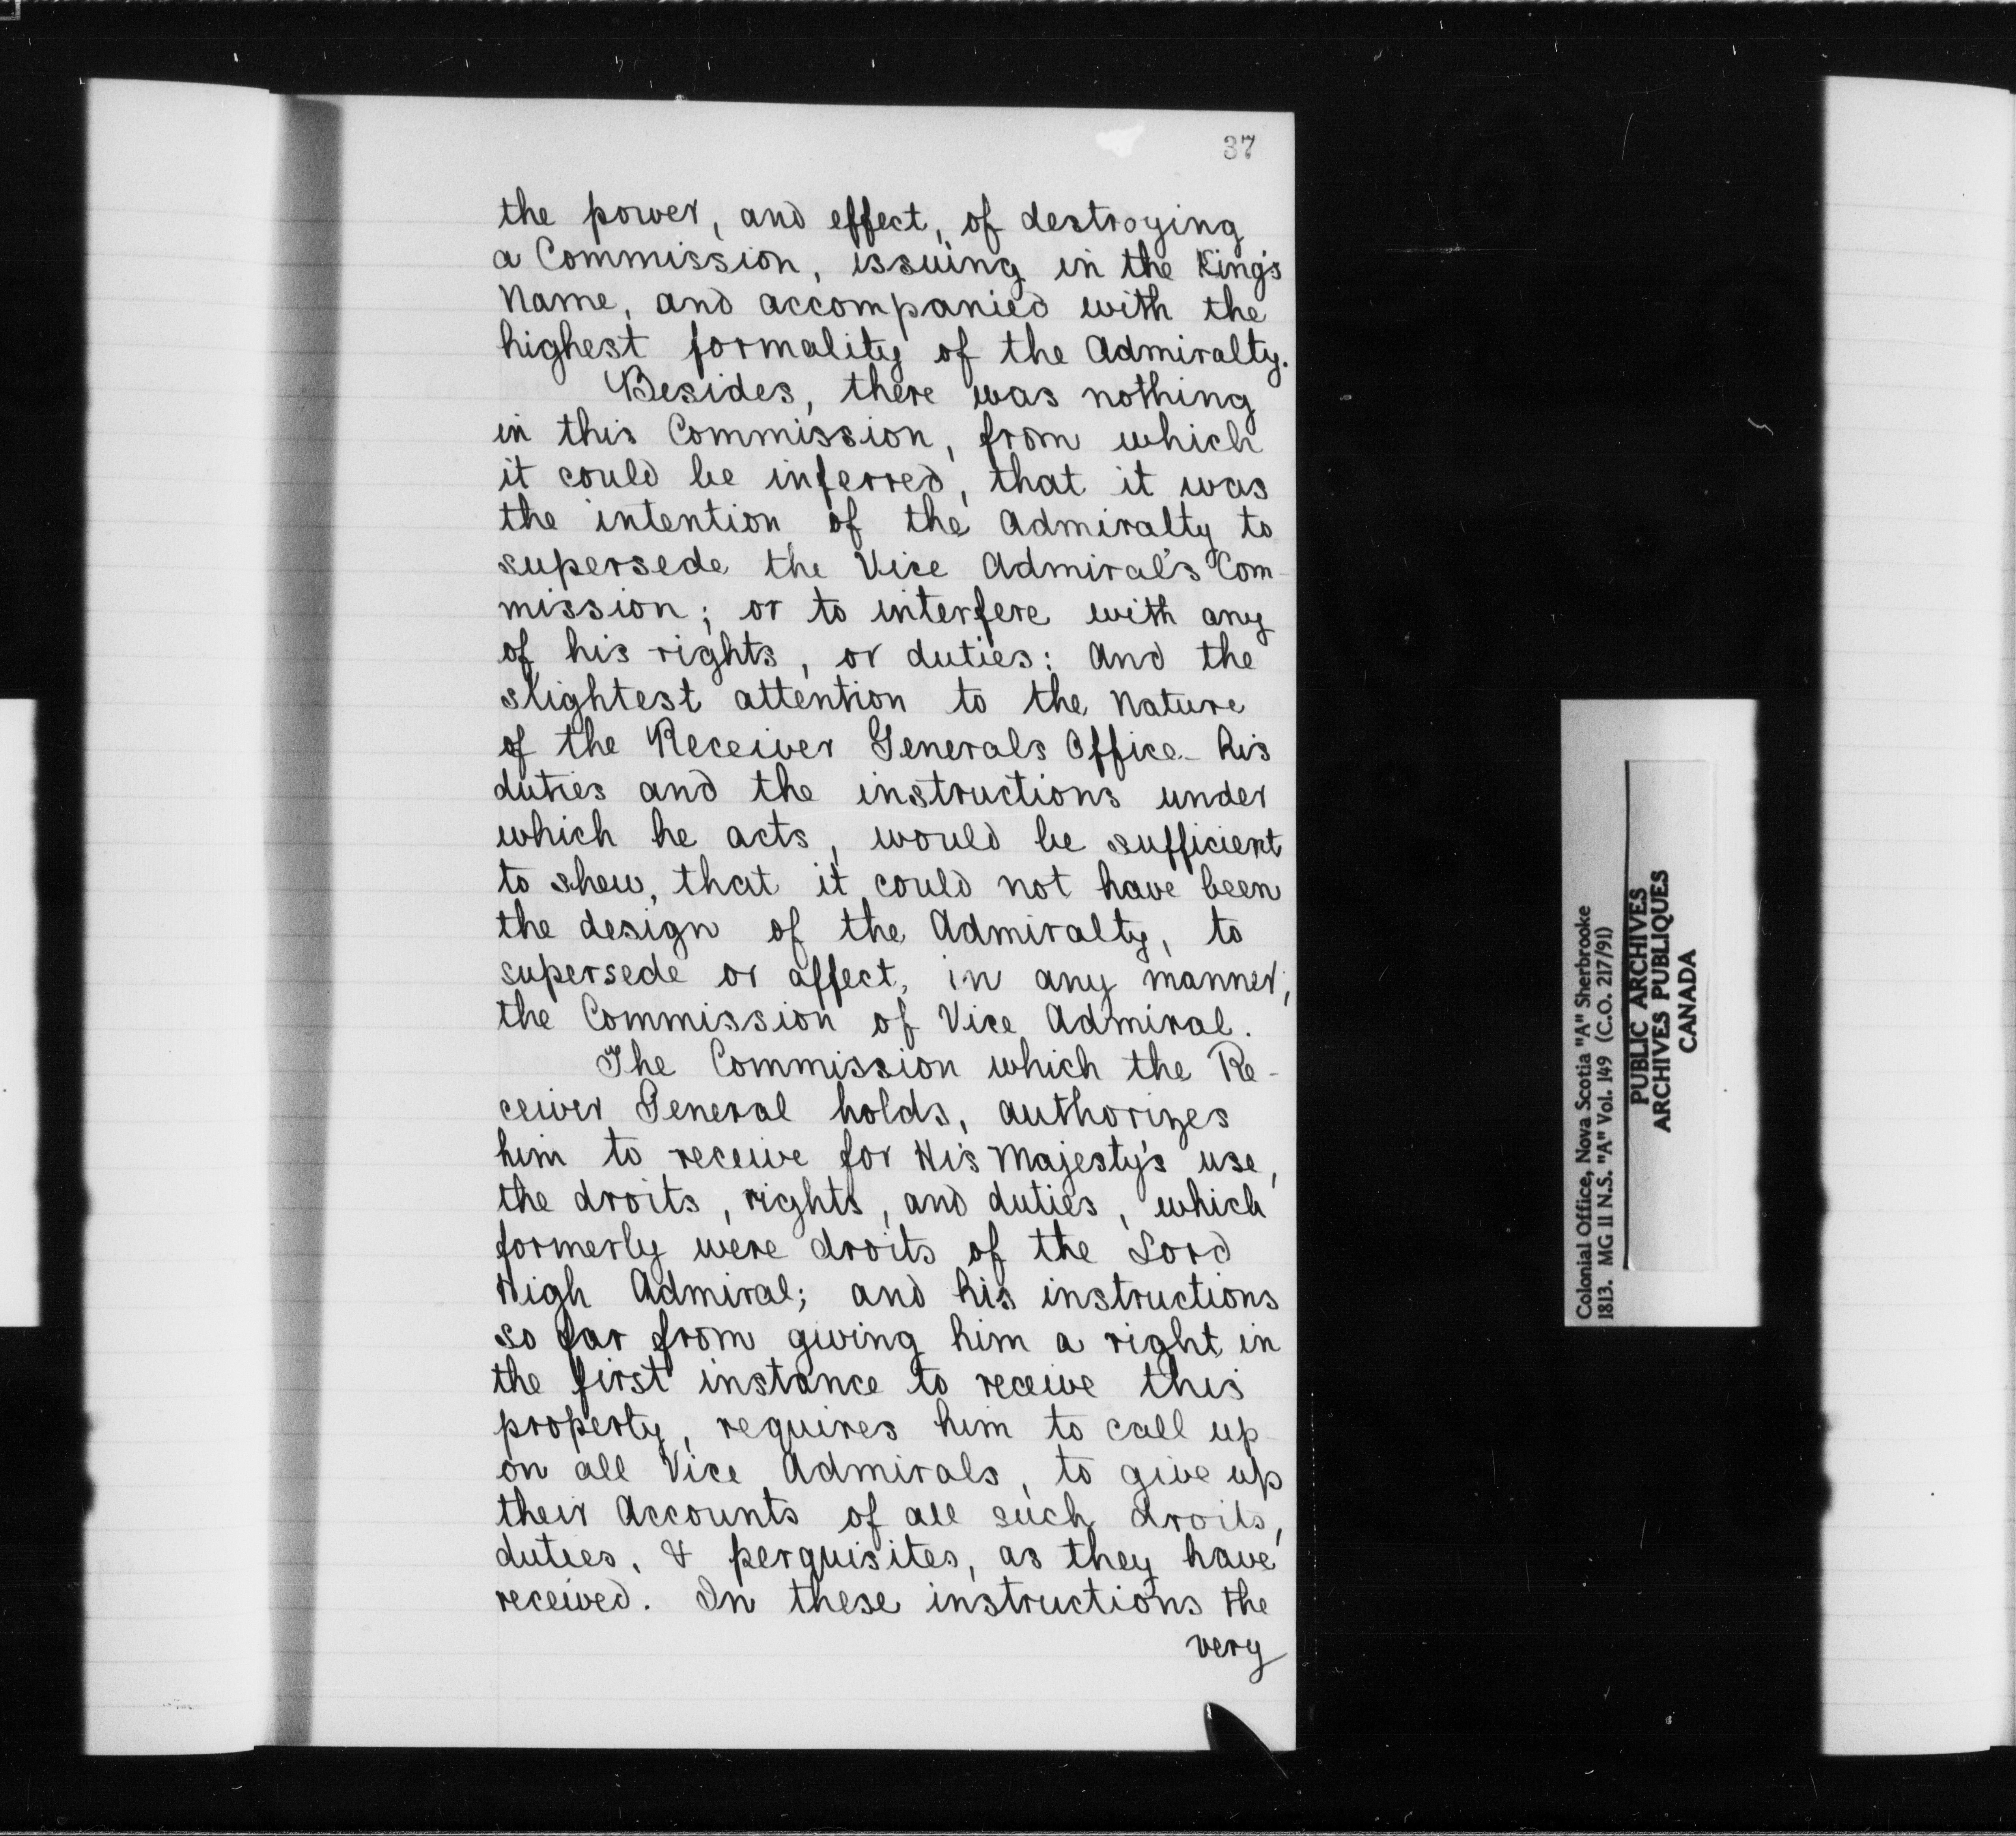 37
the power, and effect, of destroying
a Commission, issuing in the King's
Name, and accompanied with the
highest formality of the Admiralty.
Besides, there was nothing
in this Commission, from which
it could be inferred, that it was
the intention of the Admiralty to
supersede the Vice Admiral's Com-
mission; or to interfere with any
of his rights, or duties: And the
slightest attention to the Nature
of the Receiver Generals Office - his
duties and the instructions under
which he acts, would be sufficient
to shew, that it could not have been
the design of the Admiralty, to
supersede or affect, in any manner,
the Commission of Vice Admiral.
The Commission which the Re-
ceiver General holds, authorizes
him to receive for His Majesty's use,
the droits, rights, and duties, which
formerly were droits of the Lord
High Admiral; and his instructions
so far from giving him a right in
the first instance to receive this
property, requires him to call up-
on all Vice Admirals, to give up
their Accounts of all such droits,
duties, & perquisites, as they have
received. In these instructions the
very
Colonial Office, Nova Scotia "A" Sherbrooke
1813. MG 11 N.S. "A" Vol. 149 (C.O. 217/91)
PUBLIC ARCHIVES
ARCHIVES PUBLIQUES
CANADA